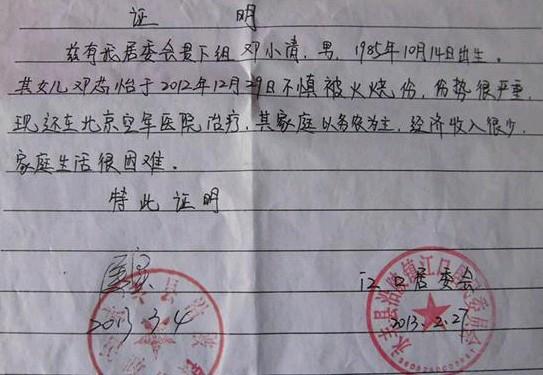 证 明
兹有我居委会贯下组 邓小清，男，1985年10月14日出生。
其女儿邓芯怡于2012年12月29日不慎被火烧份，份势很严重，
现还在北京空军医院治疗，其家庭以务农为主，经济收入很少，
家庭生活很困难。
特此证明
属实
江口居委会
2013.3.4
2013.2.27
永丰县沿陂镇江口居民委员会